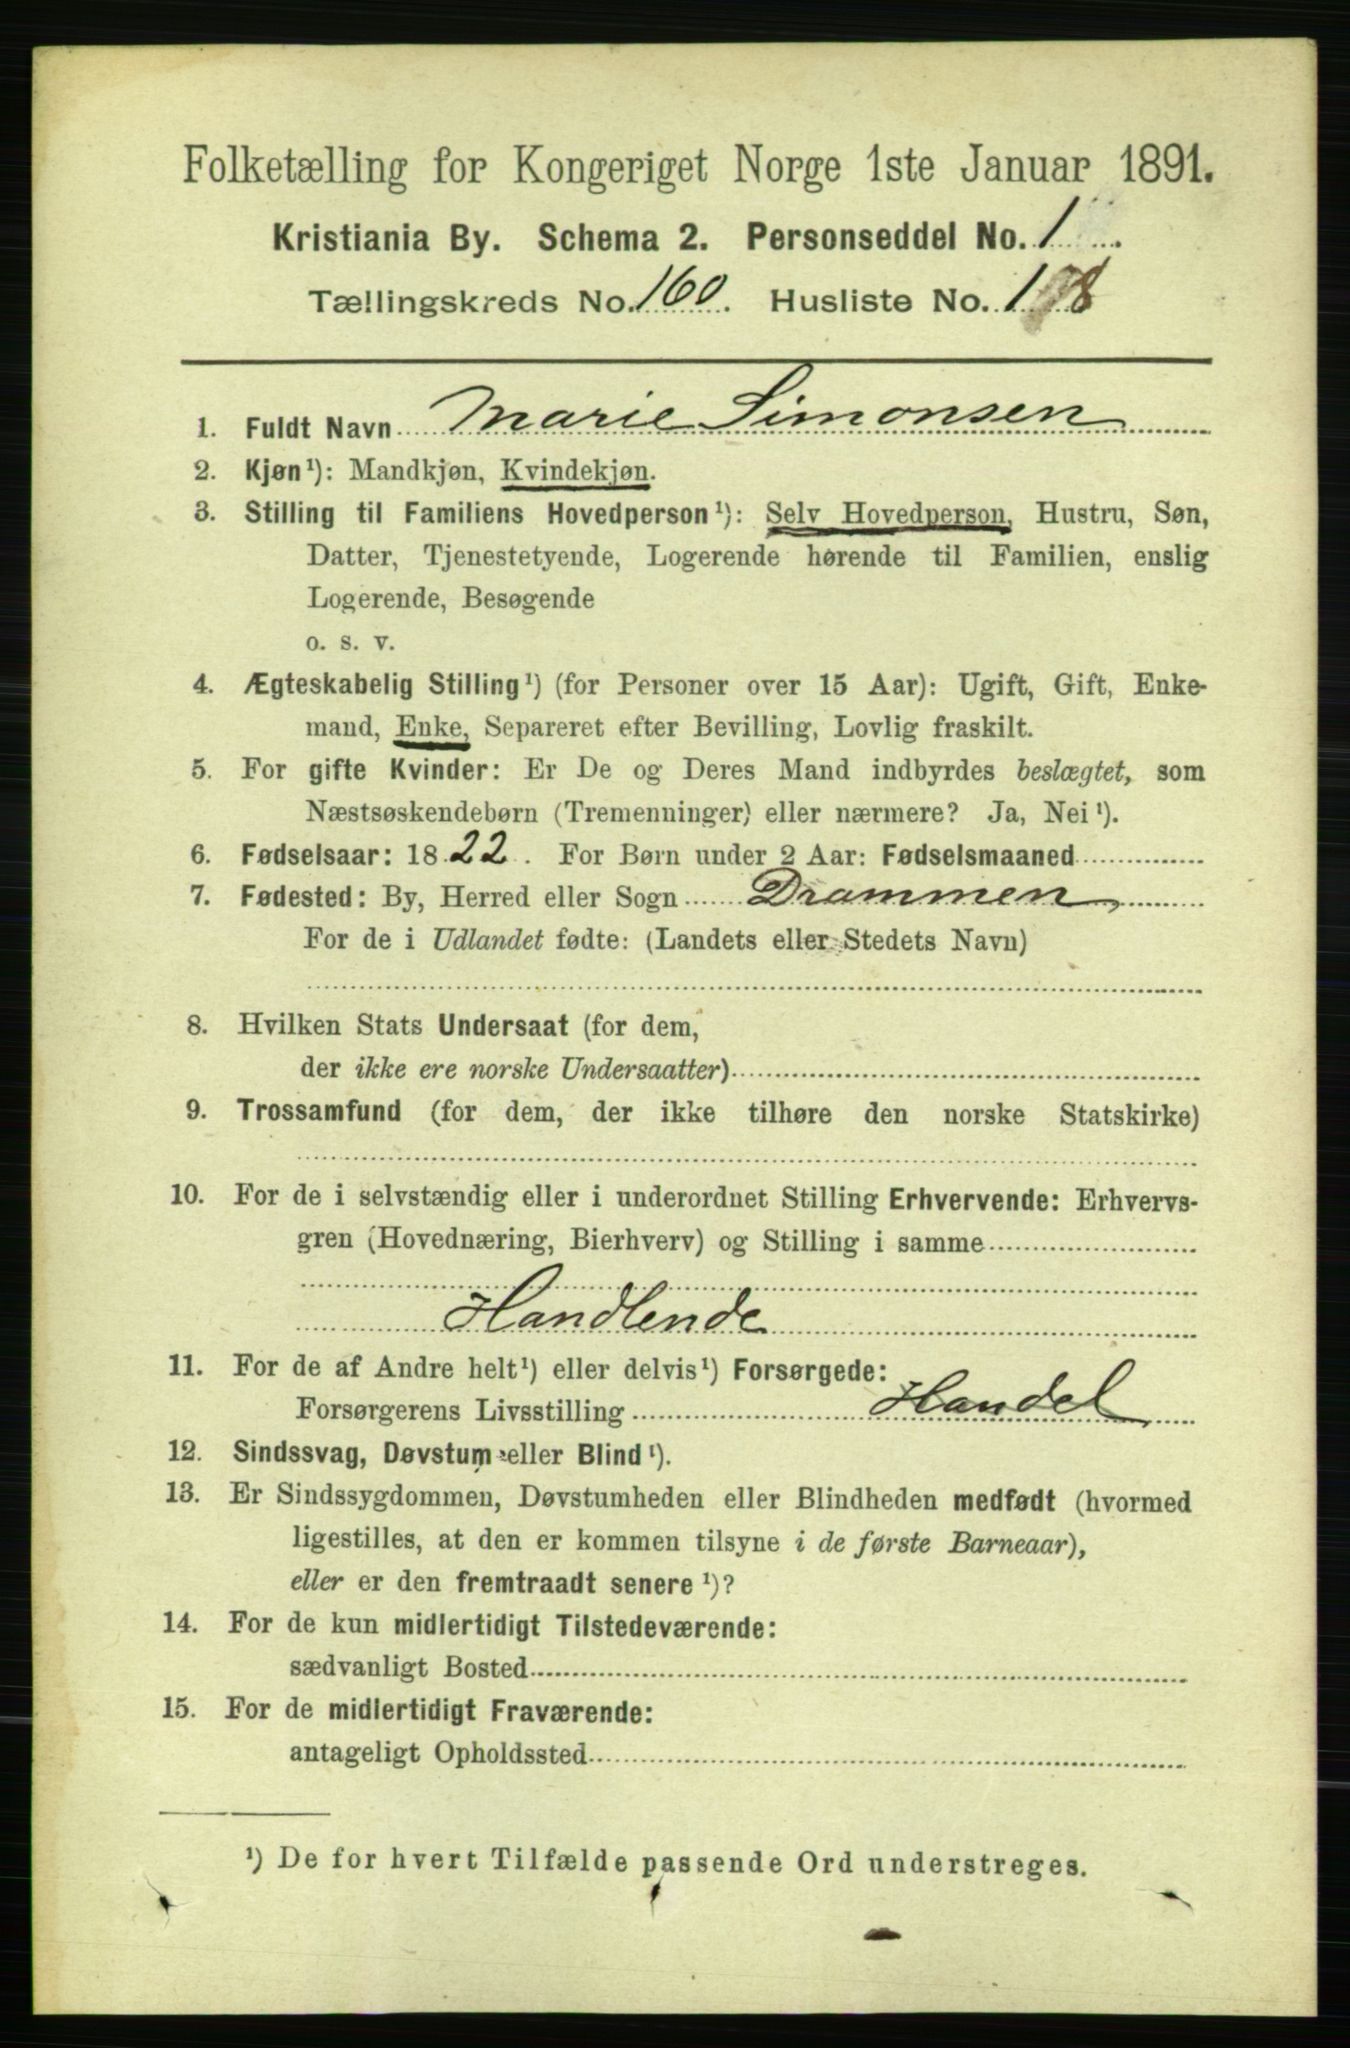 Folketælling for Kongeriget Norge 1ste Januar 1891.
Kristiania By. Schema 2. Personseddel No. 1.
Tællingskreds No. 160. Husliste No.
1. Fuldt Navn Marie Simonsen
2. Kjøn¹): Mandkjøn, Kvindekjøn.
3. Stilling til Familiens Hovedperson¹): Selv Hovedperson, Hustru, Søn,
Datter, Tjenestetyende, Logerende hørende til Familien, enslig
Logerende, Besøgende
o. s. v.
4. Ægteskabelig Stilling¹) (for Personer over 15 Aar): Ugift, Gift, Enke-
mand, Enke, Separeret efter Bevilling, Lovlig fraskilt.
5. For gifte Kvinder: Er De og Deres Mand indbyrdes beslægtet, som
Næstsøskendebørn (Tremenninger) eller nærmere? Ja, Nei¹).
6. Fødselsaar: 1822. For Børn under 2 Aar: Fødselsmaaned
7. Fødested: By, Herred eller Sogn Drammen
For de i Udlandet fødte: (Landets eller Stedets Navn)
8. Hvilken Stats Undersaat (for dem,
der ikke ere norske Undersaatter)
9. Trossamfund (for dem, der ikke tilhøre den norske Statskirke)
10. For de i selvstændig eller i underordnet Stilling Erhvervende: Erhvervs-
gren (Hovednæring, Bierhverv) og Stilling i samme
Handlende
11. For de af Andre helt¹) eller delvis¹) Forsørgede:
Forsørgerens Livsstilling Handel
12. Sindssvag, Døvstum eller Blind¹).
13. Er Sindssygdommen, Døvstumheden eller Blindheden medfødt (hvormed
ligestilles, at den er kommen tilsyne i de første Barneaar),
eller er den fremtraadt senere¹)?
14. For de kun midlertidigt Tilstedeværende:
sædvanligt Bosted
15. For de midlertidigt Fraværende:
antageligt Opholdssted
¹) De for hvert Tilfælde passende Ord understreges.